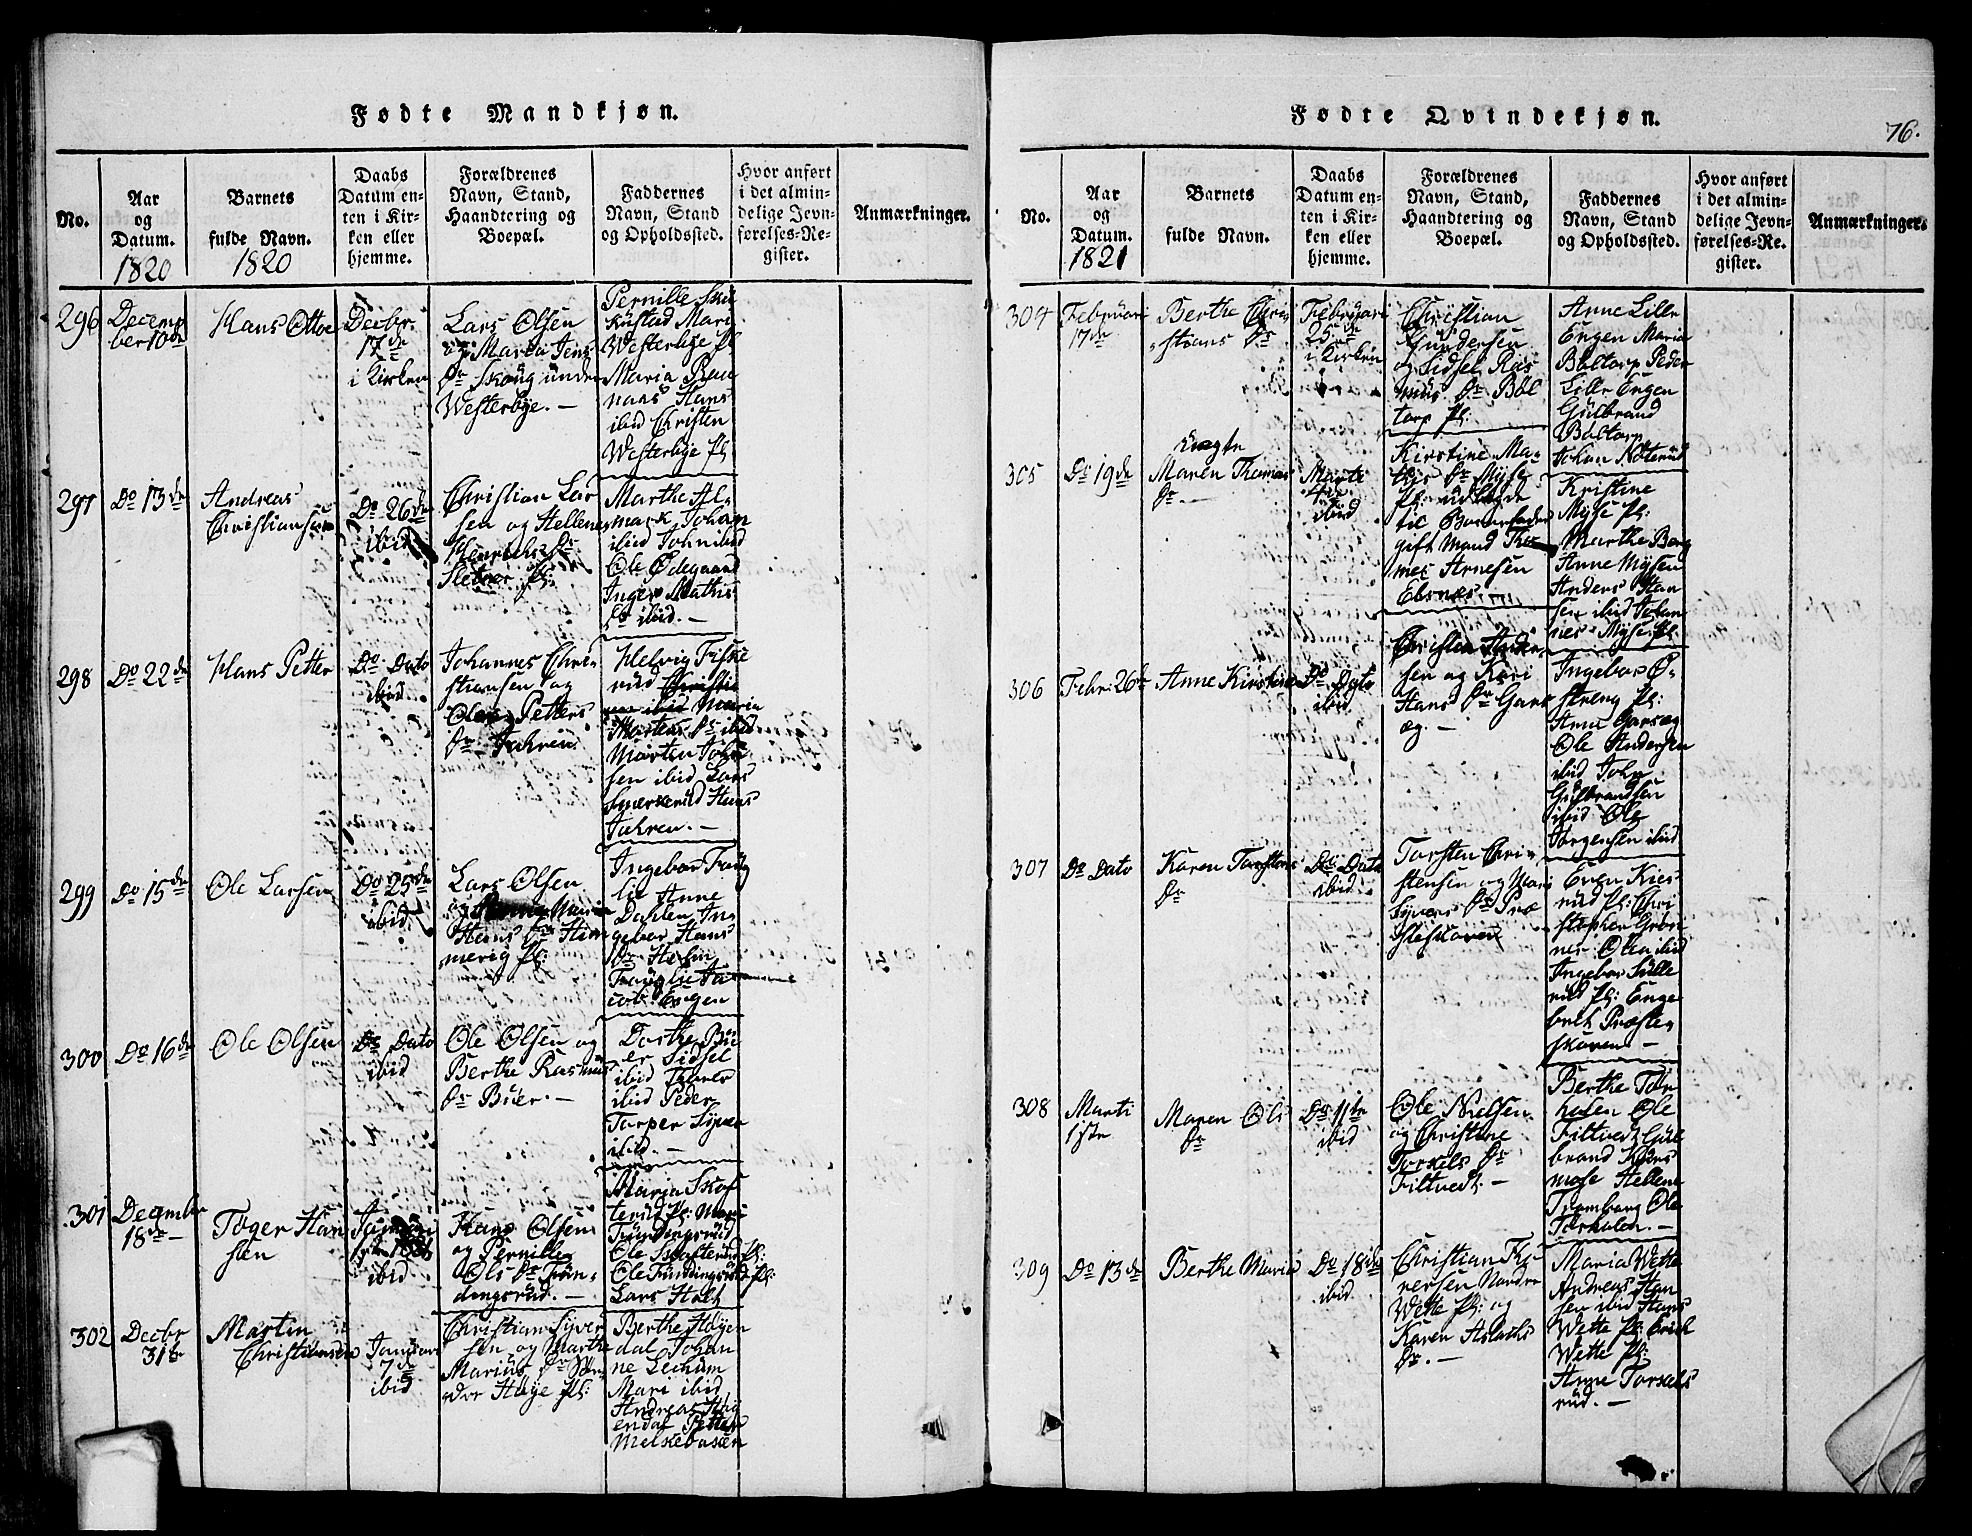 Fødte Mandkjøn.
No.
Aar
og
Datum.
1820
Barnets
fulde Navn.
1820
Daabs
Datum en-
ten i Kir-
ken eller
hjemme.
Forældrenes
Navn, Stand,
Haandtering og
Boepæl.
Faddernes
Navn, Stand
og Opholdssted.
Hvor anført
i det almin-
delige Jevn-
førelses-Re-
gister.
Anmærkninger.
296
Decemp
ber 10de
Hans Otto
Decbr.
17de
i Kirken
Lars Olsen
og Maria Jens
Dr Skoug under
Westerbye. –
Pernille Sku
kustad Mari
Westerbye Pl
Maria Ran
naas Hans
ibid Christen
Westerbye Pl.
297
Do 13de
Andreas
Christiansen
Do 26de
ibid
Christian Lar
sen og Hellene
Henrichs Dr
Sletner Pl:
Marthe Al,
mark Johan
ibid John ibid
Ole Ødegaard
Inger Mathis
Dr ibid. –
298
Do 22de
Hans Petter
Do Dato
ibid
Johannes Chri
stiansen og
Petters
Dr Jahren
Helvig Fiske
rud Christi
ane ibid Maria
Mortens Dr ibid
Morten John
sen ibid Lars
Smerkerud Hans
Jahren. –
299
Do 15de
Ole Larsen
Do 25de
ibid.
Lars Olsen
og
Hans Dr Him
merig Pl:
Ingebor Foug
lie Anne
Dahlen In
gebor Hans
Dr Holm
Fouglie Ja
cob Engen
300
Do 16de
Ole Olsen
Do Dato
ibid
Ole Olsen og
Berthe Rasmus
Dr Buer. –
Dorthe Bu
er Sidsel
ibid Thorer
ibid Peder
Torper Syver
ibid. –
301
December
18de –
Toger Han
sen
Januari
1ste 1821
ibid
Hans Olsen
og Pernille
Ols Dr Fun,
dingsrud. –
Maria Skof
terud Pl: Mari
Fundingsrud
Ole Skofterud Pl:
Ole Fundingsrud Pl:
Lars Holt
302
Decbr
31te
Martin
Christiansen
Januari
7de
ibid
Christian Syver
sen og Marthe
Marius Dr
Høye Pl:
Berthe Høyen
dal Johan
ne Lechum
Mari ibid
Andreas Høy
endal Petter
Melkebasken
Fødte Qvindekjøn.
76.
No.
Aar
og
Datum.
1821
Barnets
fulde Navn.
Daabs
Datum en-
ten i Kir-
ken eller
hjemme.
Forældrenes
Navn, Stand,
Haandtering og
Boepæl.
Faddernes
Navn, Stand
og Opholdssted.
Hvor anført
i det almin-
delige Jevn-
førelses-Re-
gister.
Anmærkninger.
304
Februari
17de
Berthe Chri
stians Dr
Februari
25de
i Kirken
Christian
Gundersen
og Sidsel Ras
mus Dr Bol
torp Pl:
Anne Lille
Engen Maria
Boltorp Peder
Lille Engen
Gulbrand
Boltorp
Johan Noterud
305
Do 19de
Uægte
Maren Thomas
Dr –
Marti
4de
ibid
Kirstine Ma-
this Dr Myse
Pl: udlagde
til Barnefader
gift Mand Tho
mas Arnesen
Ebsnæs
Kristine
Myse Pl:
Marthe Berg
Anne Mysen
Anders Han
sen ibid Johan
nes Myse Pl.
306
Febr: 26de
Anne Kirstine
Do Dato
ibid
Christen Ander
sen og Kari
Hans Dr Gars
æg. –
Ingebor Ø,
streng Pl:
Anne Garsæg
Ole Andersen
ibid John
Gulbrandsen
ibid Ole
Jørgensen ibid
307
Do Dato
Karen Torstens
Dr
Do Dato
ibid
Torsten Chri-
stensen og Mari
Syvers Dr Præ
steskoven
Even Kies
rud Pl: Chri
stopher Grøn
ner Olea ibid
Ingebor Sulle
rud Pl: Enge
bret Præste,
skoven –
308
Marti
1ste
Maren Ols
Dr
Do 11te
ibid
Ole Nielsen
og Christine
Torkels Dr
Filtvedt. –
Berthe Tor
holen Ole
Filtvedt Gul
brand Kiers
mose Hellene
Tromborg Ole
Torholen. –
309
Do 13de
Berthe Maria
Do 18de
ibid
Christian
versen Nordre
Wette Pl: og
Karen Aslachs
Dr. –
Maria Wette
Andreas Han
sen ibid Hans
Wette Pl: Erich
Wette Pl:
Anne Torkels
rud. –